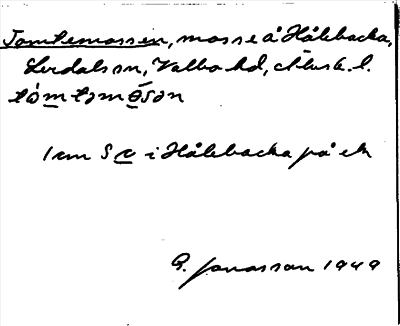 Tomtemossen, mosse å Hålebacka,
Lerdals sn, Valbo hd, Älvsb. l.
tòmtəmɵ̄sən
1 cm S v i Hålebacka på ek
G. Jonasson 1949